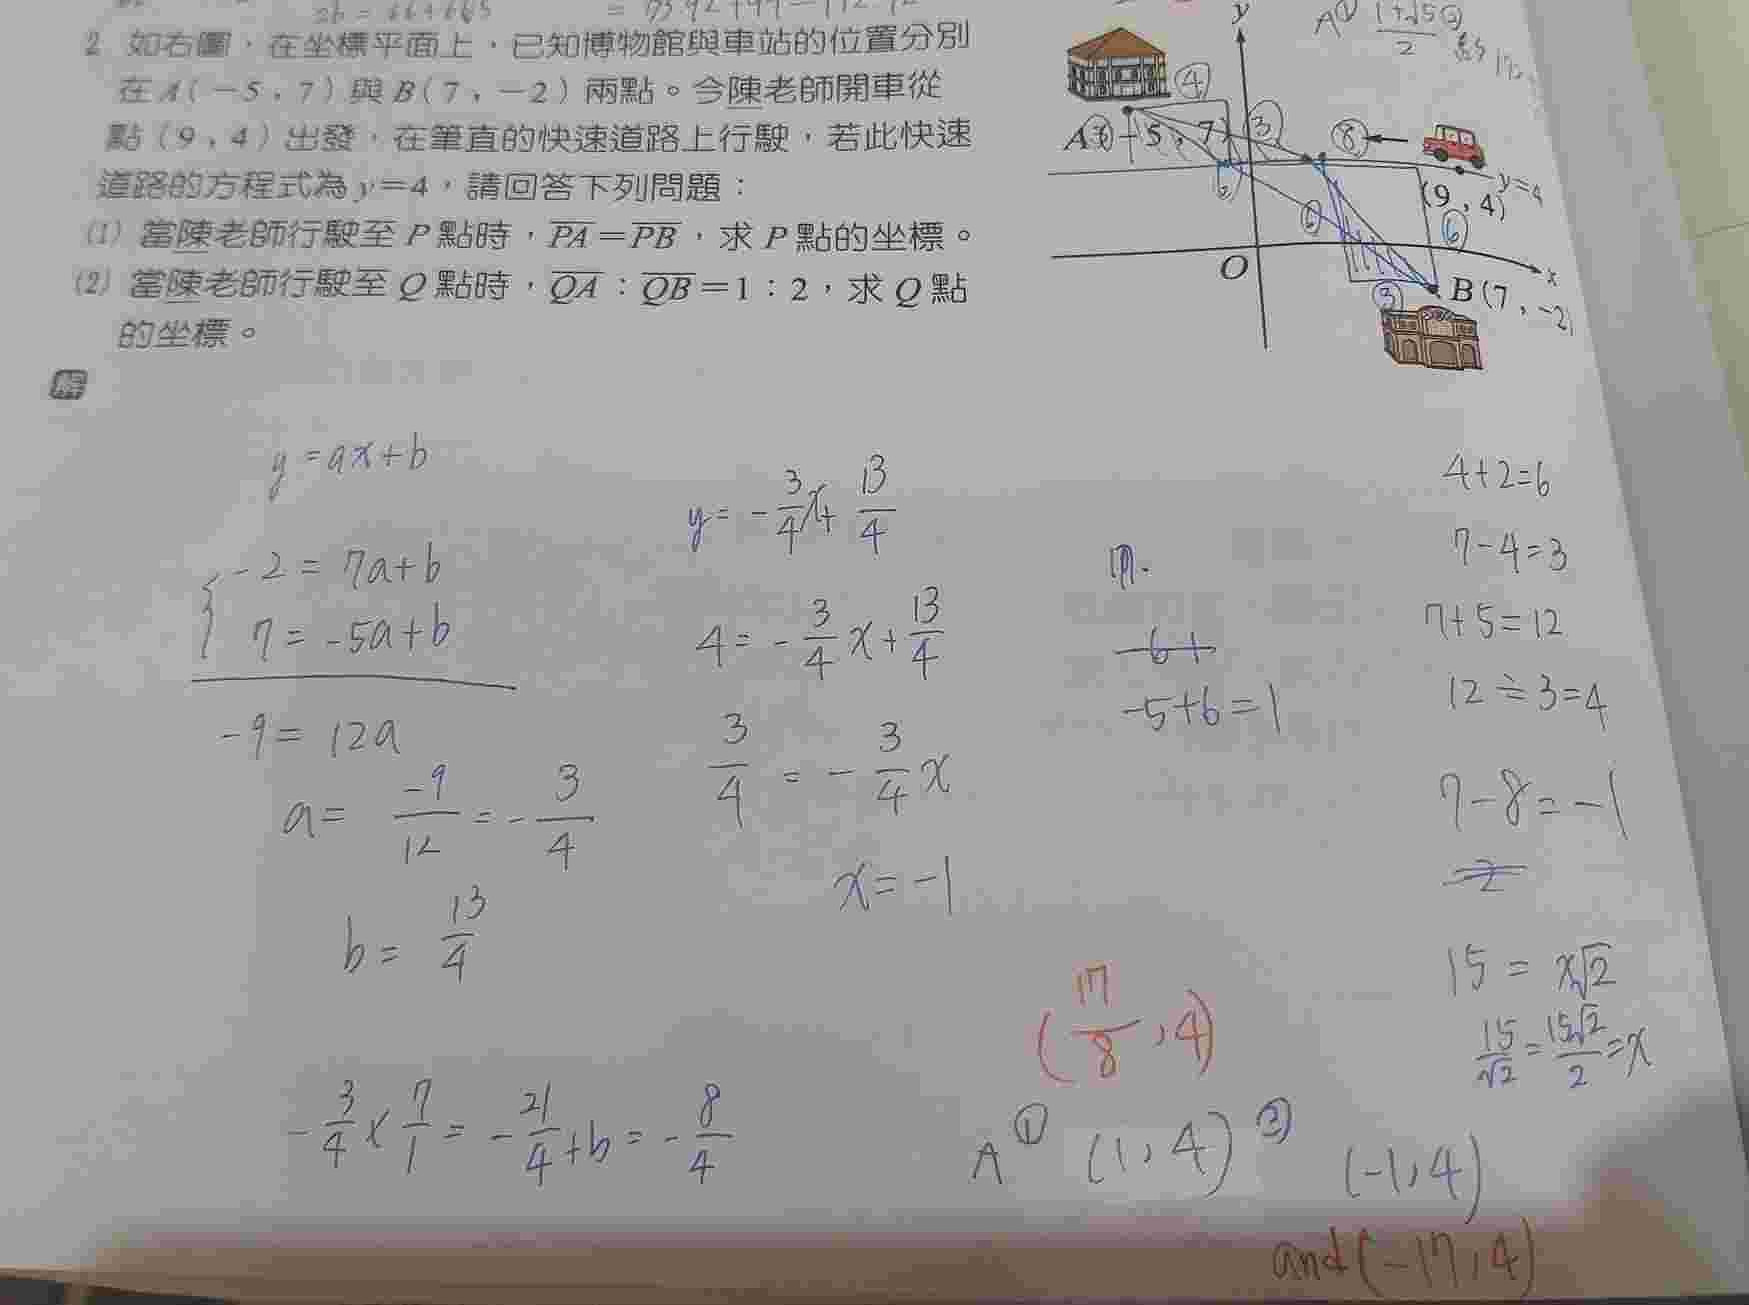 2 如右圖，在坐標平面上，已知博物館與車站的位置分別
在A(−5，7)與B(7，−2)兩點。今陳老師開車從
點(9，4)出發，在筆直的快速道路上行駛，若此快速
道路的方程式為y=4，請回答下列問題：
(1) 當陳老師行駛至P點時，PA=PB，求P點的坐標。
(2) 當陳老師行駛至Q點時，QA：QB=1：2，求Q點
的坐標。
A① 1+√5
2
y
④
A(−5，7)
③
⑧
y=4
(9，4)
⑥
O
x
③
B(7，−2)
解
y=ax+b
-2=7a+b
7=-5a+b
-9=12a
a=-9/12=-3/4
b=13/4
-3/4×7/1=-21/4+b=-8/4
y=-3/4x+13/4
4=-3/4x+13/4
3/4=-3/4x
x=-1
-6+
-5+6=1
4+2=6
7-4=3
7+5=12
12÷3=4
7-8=-1
15=x√2
15/√2=15√2/2=x
(17/8,4)
A① (1,4) ② (-1,4)
and(-17,4)